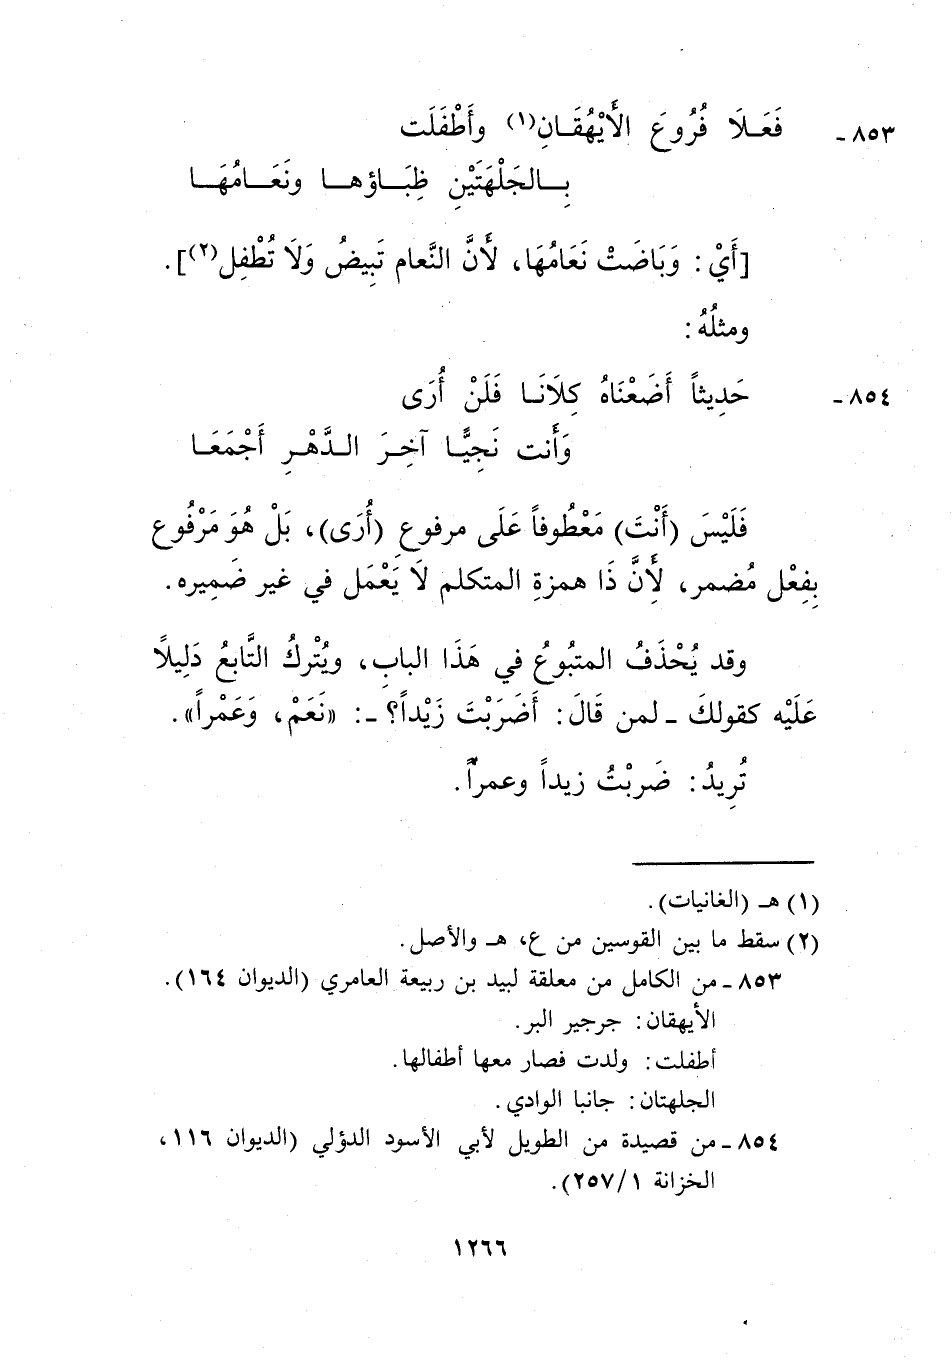 ٨٥٣ - فَعَـلَا فُرُوعَ الأَيْهُقَـانِ(١) وأَطْفَلَت
بِـالجَلْهَتَيْنِ ظِبَـاؤهـا ونَعَـامُهَـا
[أَيْ: وَبَاضَتْ نَعَامُهَا، لأَنَّ النَّعام تَبِيضُ وَلَا تُطْفِل(٢)].
ومثلُهُ:
٨٥٤ - حَدِيثاً أَضَعْنَاهُ كِلَانَـا فَلَنْ أُرَى
وَأَنت نَجِيًّـا آخِرَ الـدَّهْـرِ أَجْمَعَـا
فَلَيْسَ (أَنْتَ) مَعْطُوفاً عَلَى مرفوعِ (أُرَى)، بَلْ هُوَ مَرْفُوع
بِفِعْل مُضمر، لِأَنَّ ذَا همزةِ المتكلم لَا يَعْمَل في غير ضَمِيره.
وقد يُحْذَفُ المتبُوعُ في هَذَا البابِ، ويُتْركُ التَّابعُ دَلِيلاً
عَلَيْه كقولكَ ـ لمن قَالَ: أَضَرَبْتَ زَيْداً؟ ـ: «نَعَمْ، وَعَمْراً».
تُرِيدُ: ضَربْتُ زيداً وعمراً.
(١) هـ (الغانيات).
(٢) سقط ما بين القوسين من ع، هـ والأصل.
٨٥٣ - من الكامل من معلقة لبيد بن ربيعة العامري (الديوان ١٦٤).
الأيهقان: جرجير البر.
أطفلت: ولدت فصار معها أطفالها.
الجلهتان: جانبا الوادي.
٨٥٤ - من قصيدة من الطويل لأبي الأسود الدؤلي (الديوان ١١٦،
الخزانة ١/ ٢٥٧).
١٢٦٦